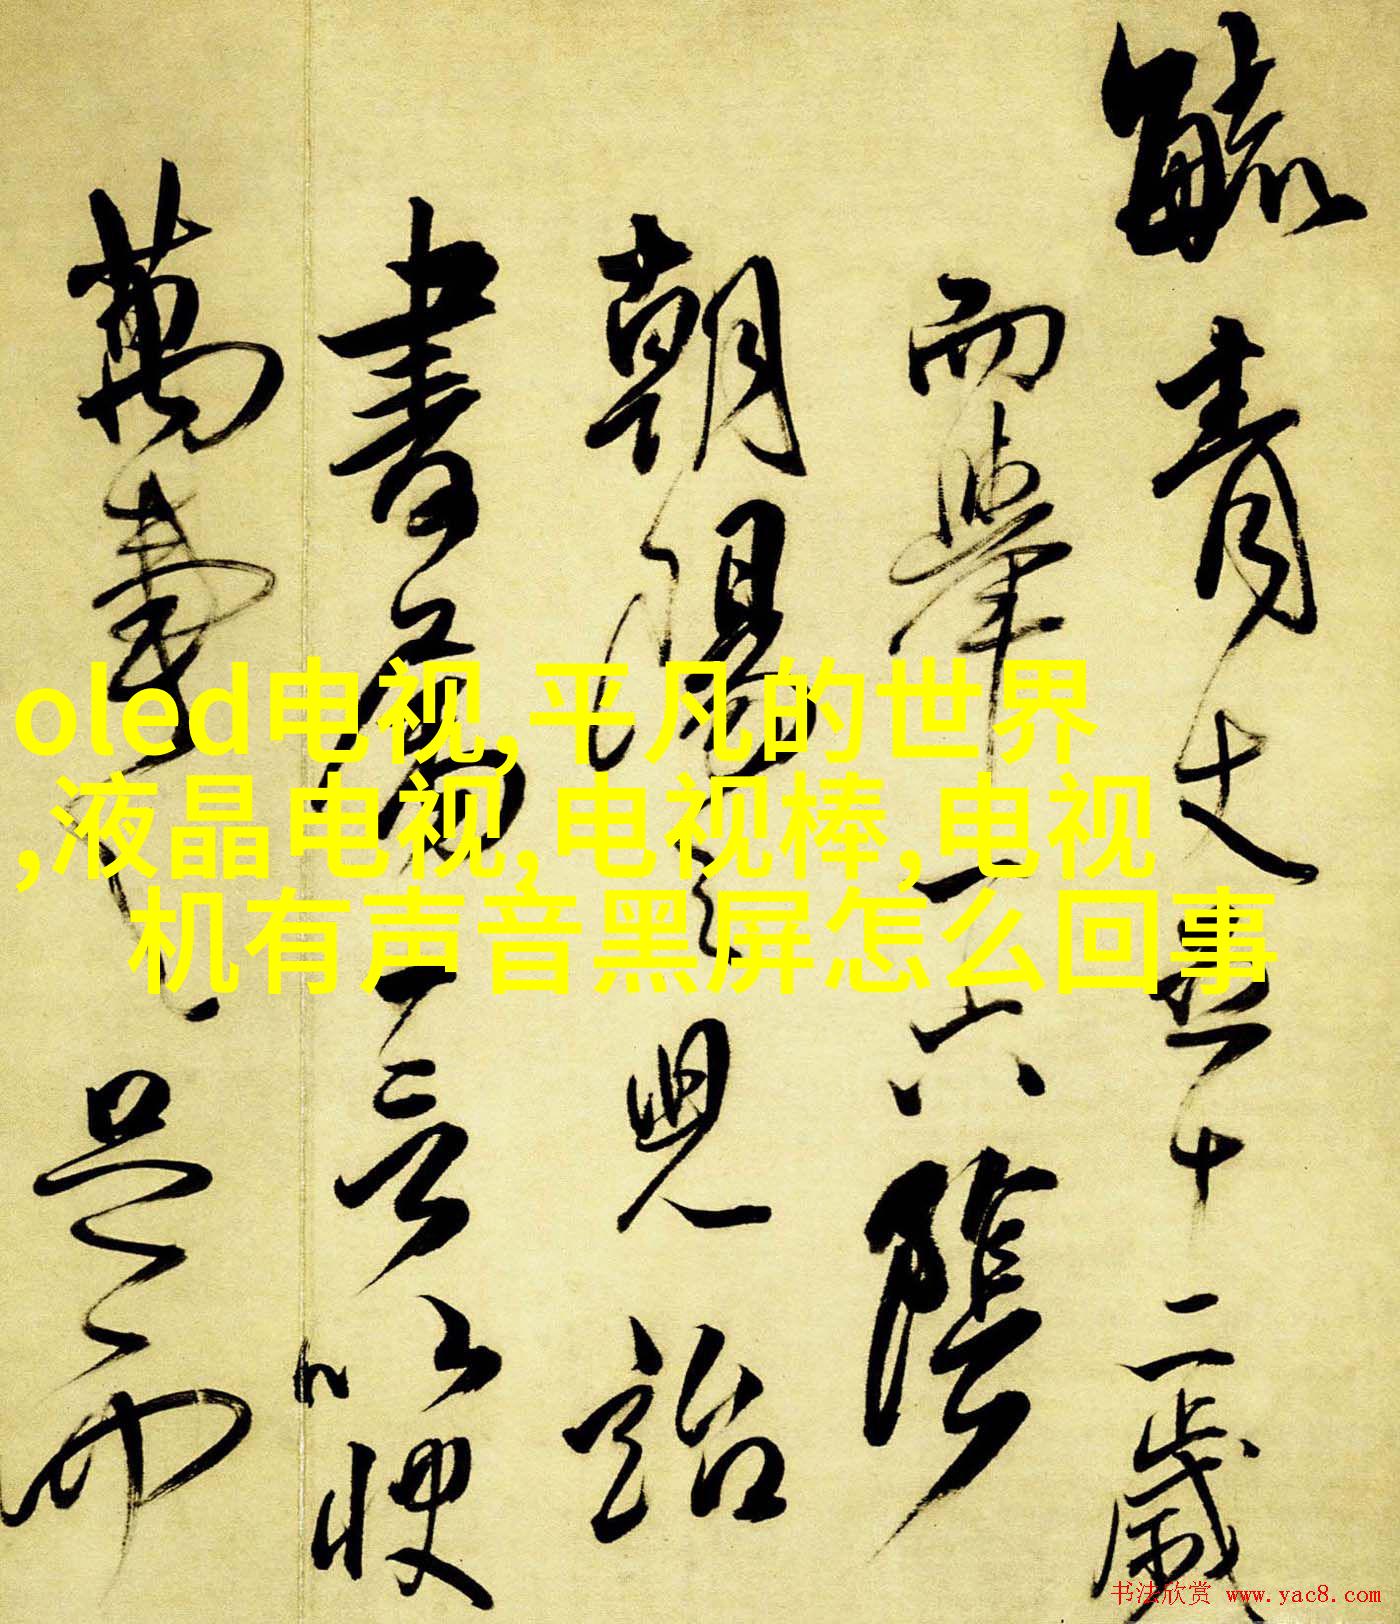 毓青丈五十二歲
而舉六陰
朝陽之見詒
書屬言以梗
萬
oled电视,平凡的世界
,液晶电视,电视棒,电视
机有声音黑屏怎么回事
书法欣赏 www.yac8.com